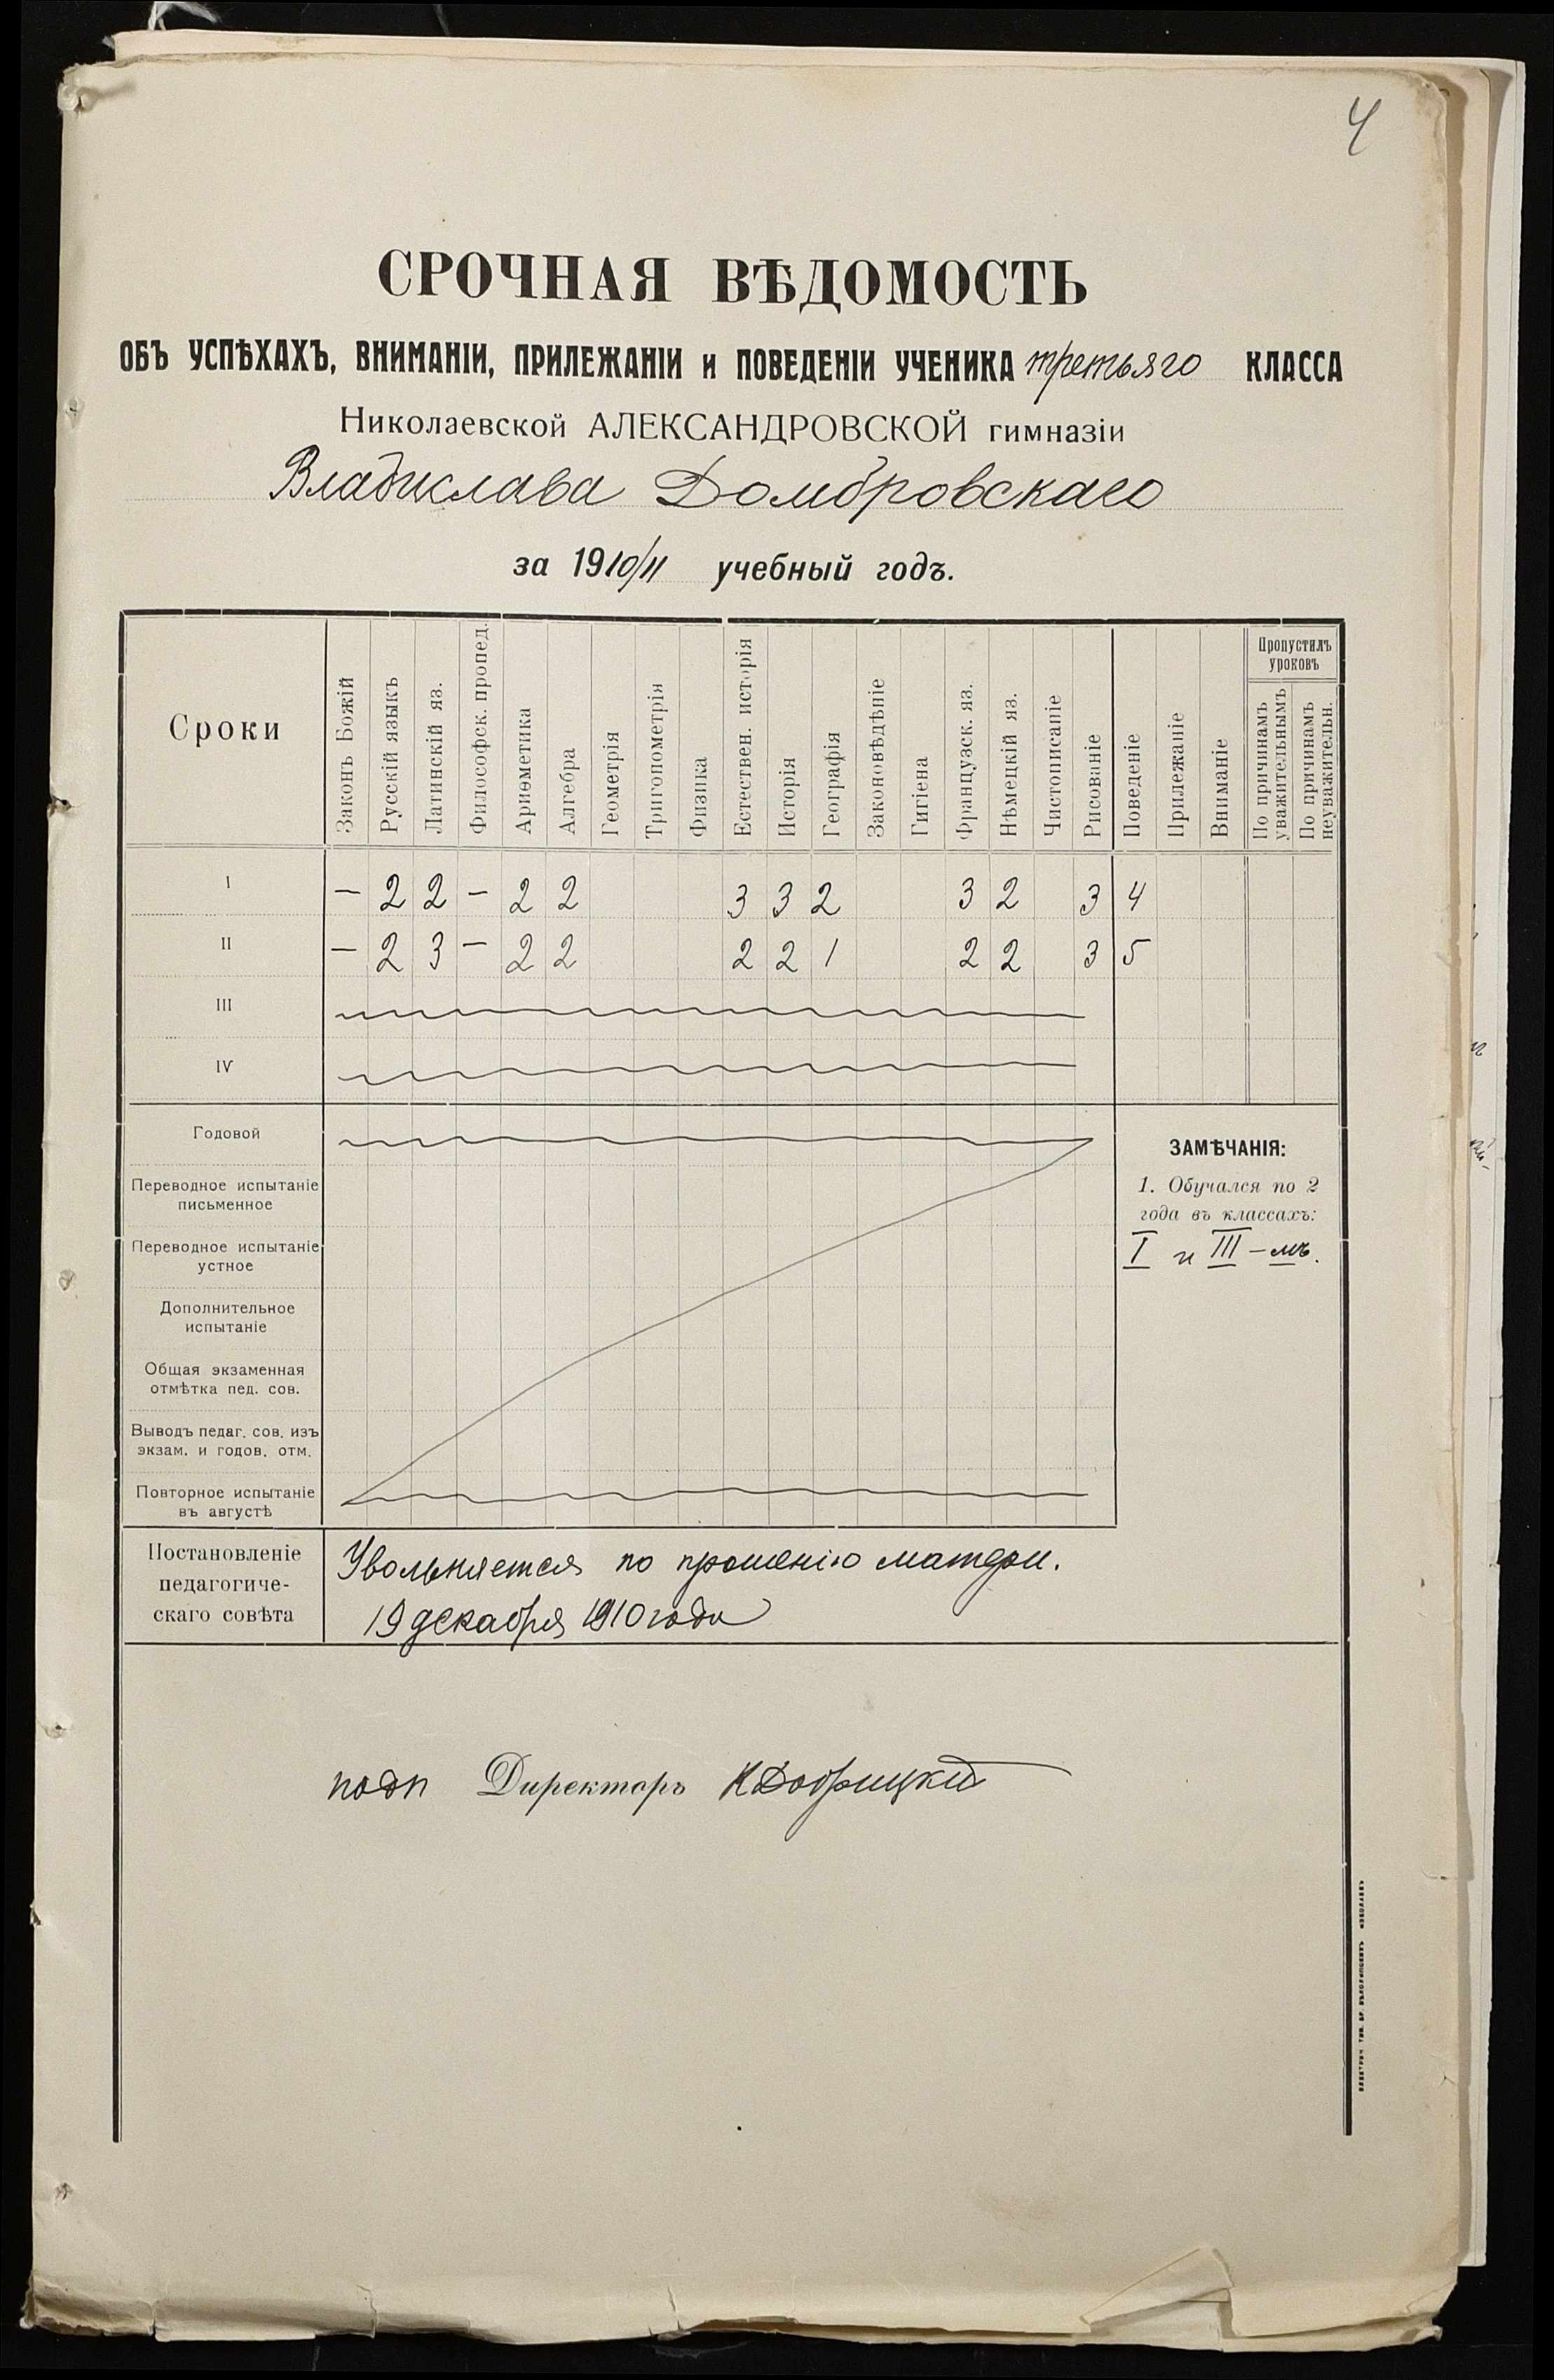 4
СРОЧНАЯ ВѢДОМОСТЬ
ОБЪ УСПѢХАХЪ, ВНИМАНІИ, ПРИЛЕЖАНІИ и ПОВЕДЕНІИ УЧЕНИКА третьяго КЛАССА
Николаевской АЛЕКСАНДРОВСКОЙ гимназіи
Владислава Домбровскаго
за 1910/11 учебный годъ.
Сроки
Законъ Божій
Русскій языкъ
Латинскій яз.
Философск. пропед.
Ариѳметика
Алгебра
Геометрія
Тригонометрія
Физика
Естествен. исторія
Исторія
Географія
Законовѣдѣніе
Гигіена
Французск. яз.
Нѣмецкій яз.
Чистописаніе
Рисованіе
Поведеніе
Прилежаніе
Вниманіе
Пропустилъ
уроковъ
По причинамъ
уважительнымъ
По причинамъ
неуважительн.
I — 2 2 — 2 2 3 3 2 3 2 3 4
II — 2 3 — 2 2 2 2 1 2 2 3 5
III
IV
Годовой
Переводное испытаніе
письменное
Переводное испытаніе
устное
Дополнительное
испытаніе
Общая экзаменная
отмѣтка пед. сов.
Выводъ педаг. сов. изъ
экзам. и годов. отм.
Повторное испытаніе
въ августѣ
ЗАМѢЧАНІЯ:
1. Обучался по 2
года въ классахъ:
I и III-мъ.
Постановленіе
педагогиче-
скаго совѣта
Увольняется по прошенію матери.
19 декабря 1910 года
подп Директоръ К Добрицкій